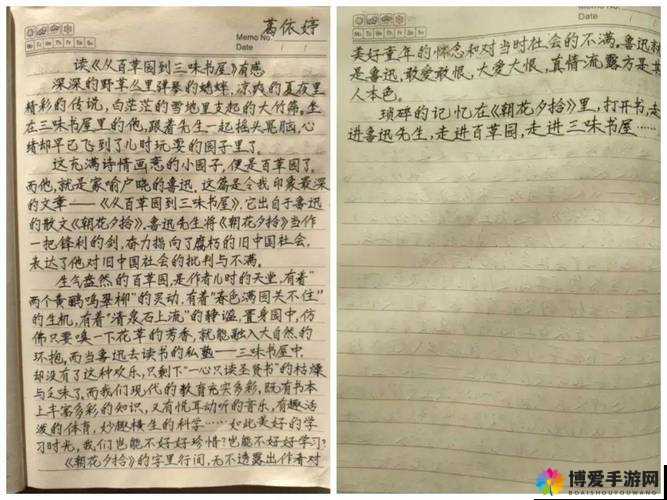 葛依婷
Memo No.
Date
Mo Tu We Th Fr Sa Su
读《从百草园到三味书屋》有感
深深的野草丛里弹琴的蟋蟀,凉爽的夏夜里
精彩的传说,白茫茫的雪地里支起的大竹筛。坐
在三味书屋里的他,跟着先生一起摇头晃脑,心
绪却早已飞到了儿时玩耍的园子里了。
这充满诗情画意的小园子,便是百草园了。
而他,就是家喻户晓的鲁迅。这篇是令我印象最深
的文章——《从百草园到三味书屋》。它出自于鲁迅
的散文《朝花夕拾》。鲁迅先生将《朝花夕拾》当作
一把锋利的剑,奋力指向了腐朽的旧中国社会,
表达了他对旧中国社会的批判与不满。
生气盎然的百草园,是作者儿时的天堂,有着"
两个黄鹂鸣翠柳"的灵动,有着"春色满园关不住"
的生机,有着"清泉石上流"的静谧。置身园中,仿
佛只要嗅一下花草的芳香,就能融入大自然的
环抱。而当鲁迅去读书的私塾——三味书屋中,
却没有了这种欢乐,只剩下"一心只读圣贤书"的枯燥
与乏味了。而我们现代的教育充实多彩,既有书本
上丰富多彩的知识,又有悦耳动听的音乐,有趣活
泼的体育,妙趣横生的科学……如此美好的学
习时光,我们岂能不好好珍惜?岂能不好好学习?
《朝花夕拾》的字里行间,无不透露出作者对
Memo No.
Date
Mo Tu We Th Fr Sa Su
美好童年的怀念和对当时社会的不满。鲁迅就
是鲁迅,敢爱敢恨,大爱大恨,真情流露方是其
人本色。
琐碎的记忆在《朝花夕拾》里,打开书,走
进鲁迅先生,走进百草园,走进三味书屋……
博爱手游网
BOAISHOUYOUWANG